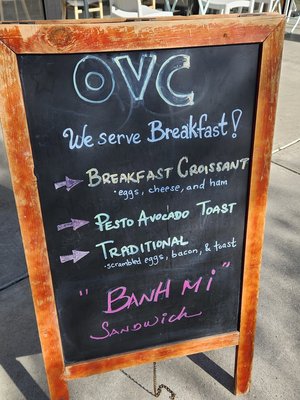 OVC
We serve Breakfast!
BREAKFAST CROISSANT
• eggs, cheese, and ham
PESTO AVOCADO TOAST
TRADITIONAL
• scrambled eggs, bacon, & toast
"BANH MI"
SANDWICH